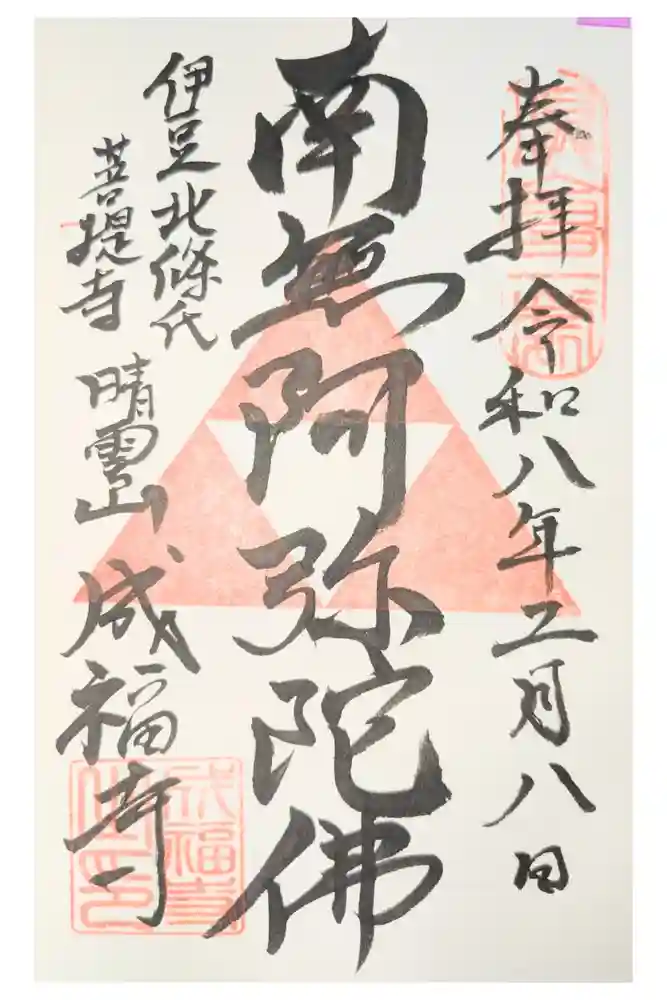 奉拝 令和八年二月八日
南無阿弥陀佛
伊豆北條氏
菩提寺 晴雲山 成福寺
成福寺